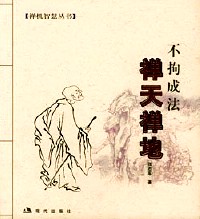 【禅机智慧丛书】
不拘成法
禅天禅地
著
现代出版社